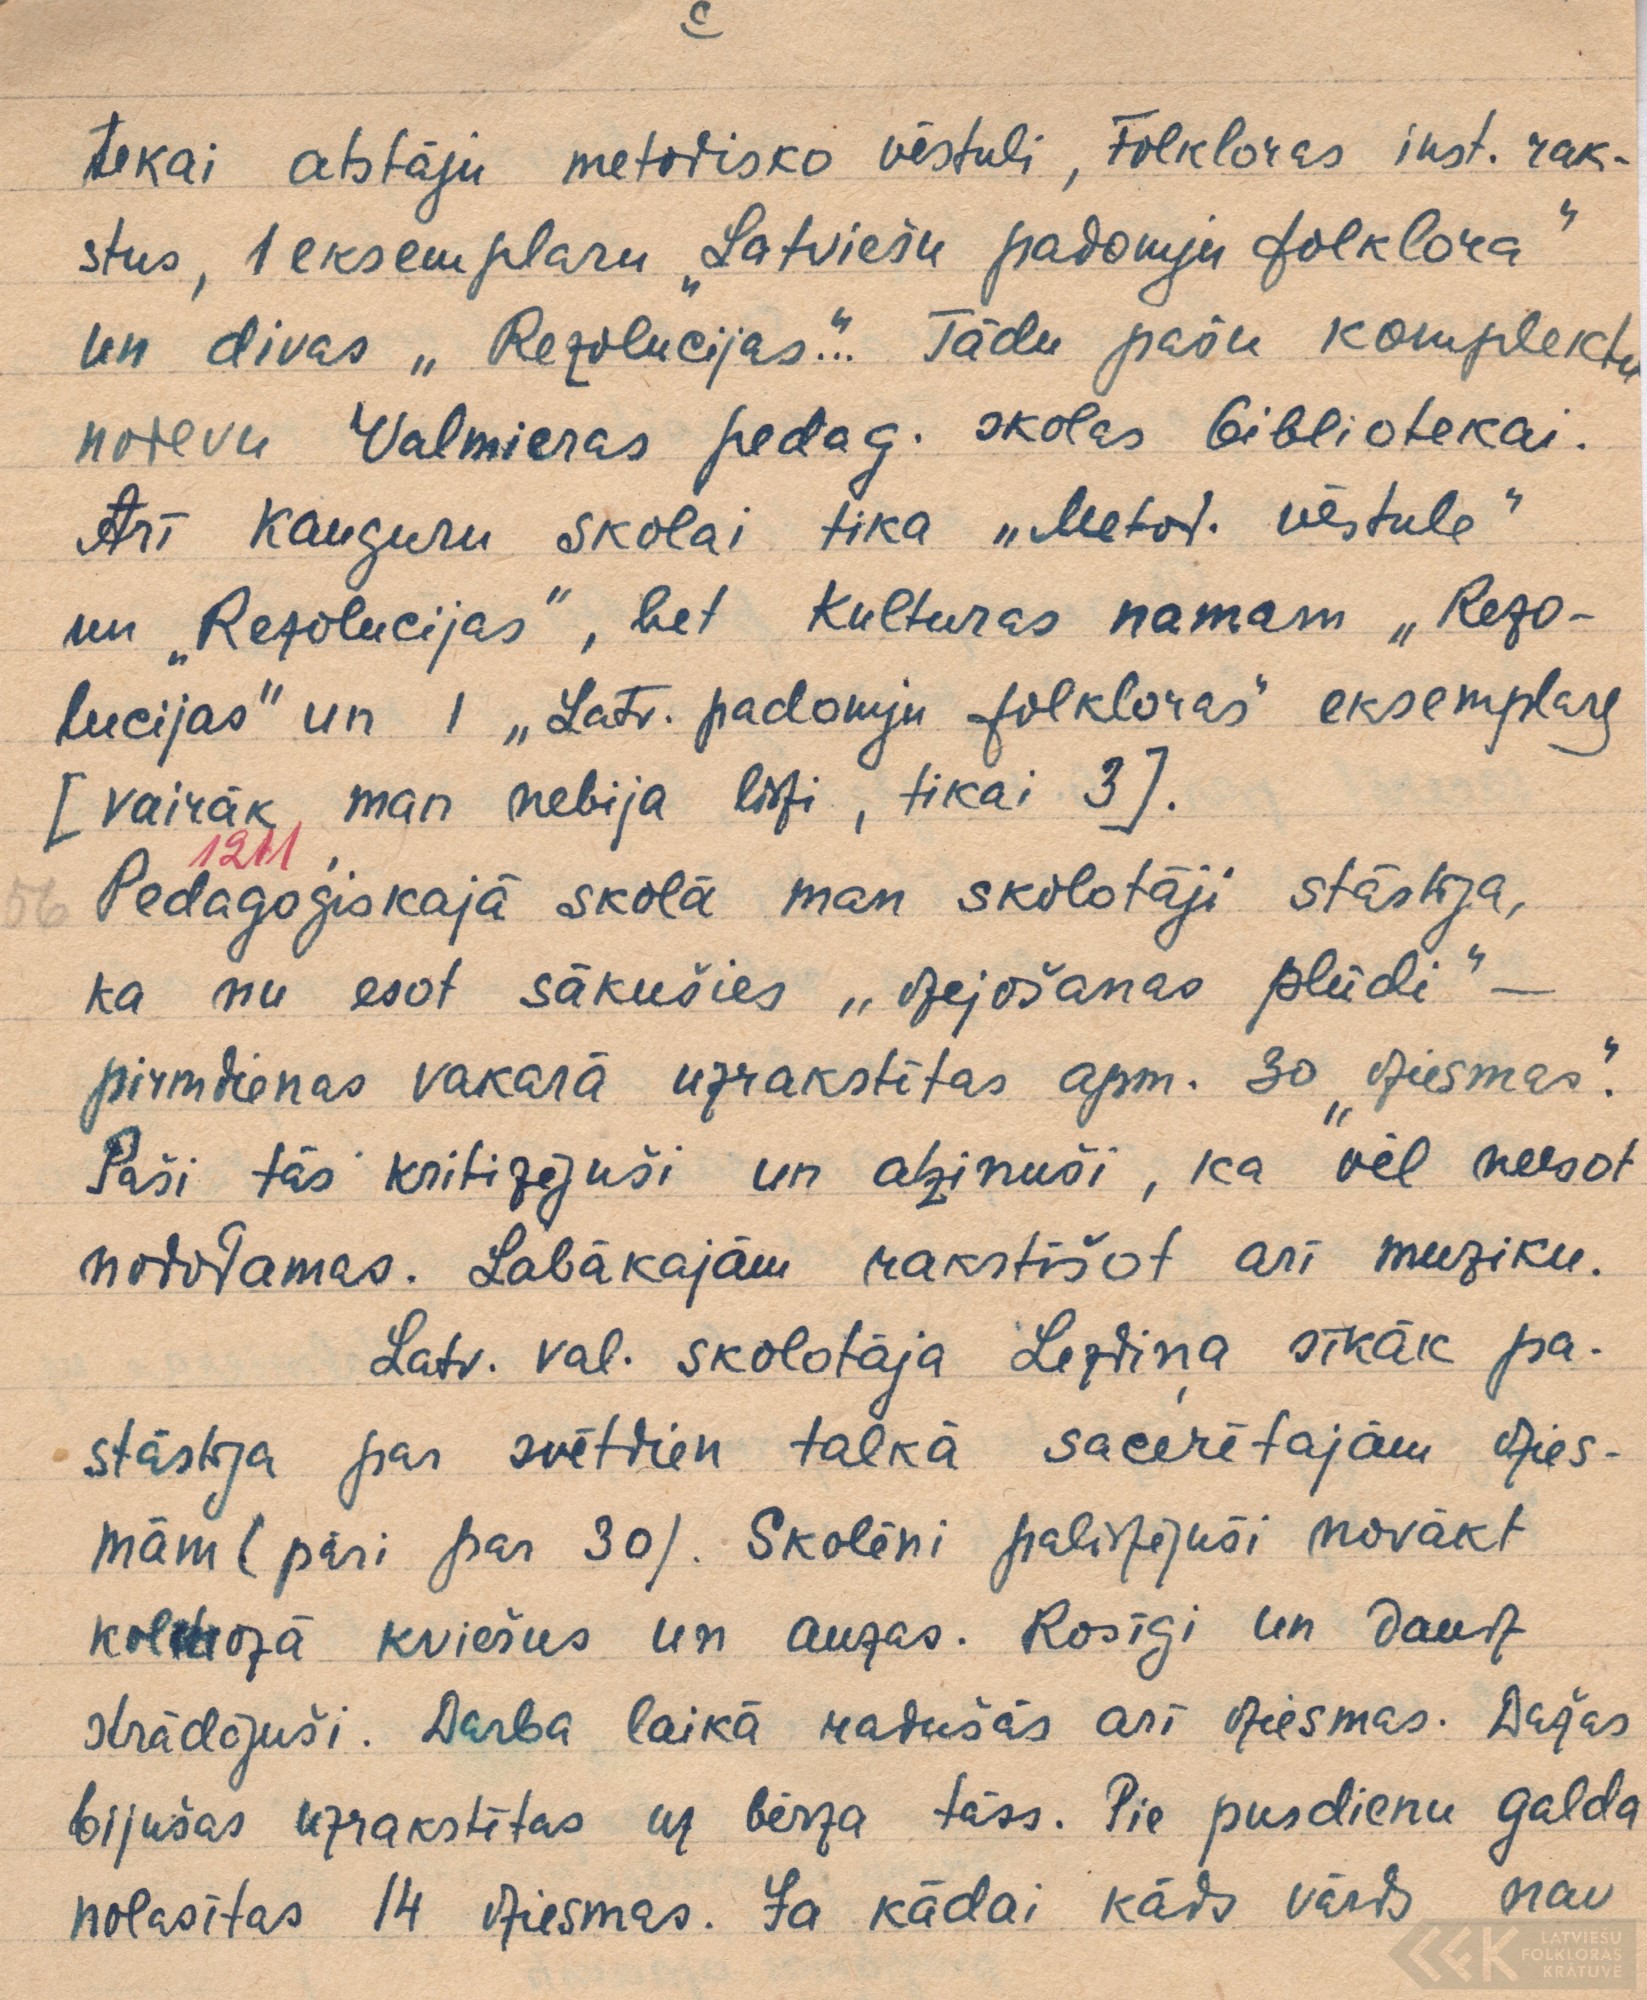 tekai atstāju metodisko vēstuli, Folkloras inst. rak-
stus, 1 eksemplaru „Latviešu padomju folklora"
un divas „Rezolucijas..." Tādu pašu komplektu
nodevu Valmieras pedag. skolas bibliotekai.
Arī Kauguru skolai tika „Metod. vēstule"
un „Rezolucijas", bet Kulturas namam „Rezo-
lucijas" un 1 „Latv. padomju folkloras" eksemplars
[vairāk man nebija līdzi, tikai 3].
1211
56 Pedagoģiskajā skolā man skolotāji stāstīja,
ka nu esot sākušies „dzejošanas plūdi" —
pirmdienas vakarā uzrakstītas apm. 30 „dziesmas".
Paši tās kritizējuši un atzinuši, ka vēl neesot
nododamas. Labākajām rakstīšot arī muziku.
Latv. val. skolotāja Lezdiņa sīkāk pa-
stāstīja par svētdien talkā sacerētajām dzies-
mām (pāri par 30). Skolēni palīdzējuši novākt
kolchozā kviešus un auzas. Rosīgi un daudz
strādājuši. Darba laikā radušās arī dziesmas. Dažas
bijušas uzrakstītas uz bērza tāss. Pie pusdienu galda
nolasītas 14 dziesmas. Ja kādai kāds vārds nav
LATVIEŠU
FOLKLORAS
KRĀTUVE